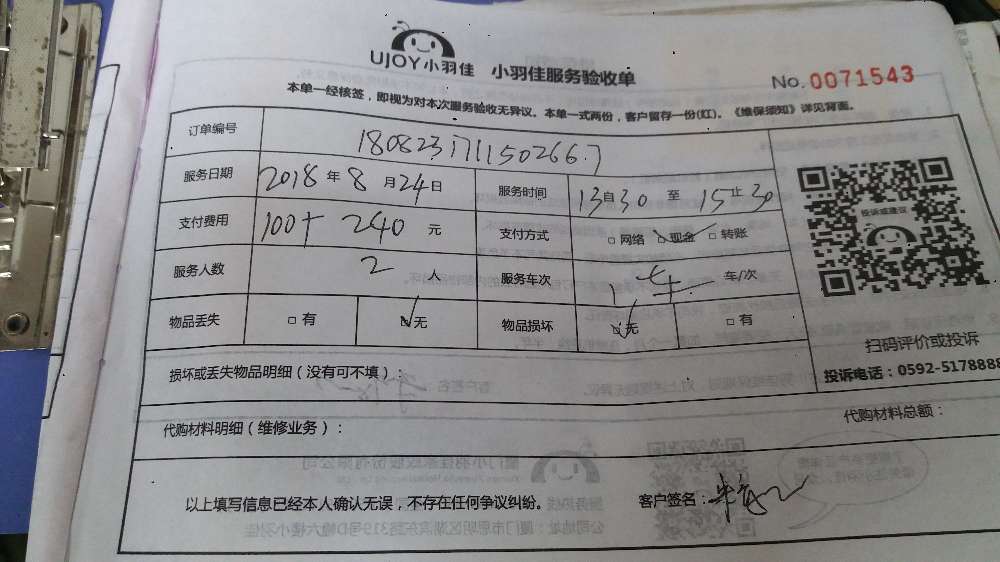 UJOY小羽佳 小羽佳服务验收单
No.0071543
本单一经核签，即视为对本次服务验收无异议。本单一式两份，客户留存一份(红)。《维保须知》详见背面。
订单编号 180823171150266.7
服务日期 2018年8月24日 服务时间 13自30至15止30
支付费用 100+240元 支付方式 □网络 ☑现金 □转账
服务人数 2人 服务车次 车/次
物品丢失 □有 ☑无 物品损坏 ☑无 □有
投诉或建议
扫码评价或投诉
投诉电话：0592-5178888
损坏或丢失物品明细（没有可不填）：
代购材料明细（维修业务）： 代购材料总额：
以上填写信息已经本人确认无误，不存在任何争议纠纷。 客户签名：